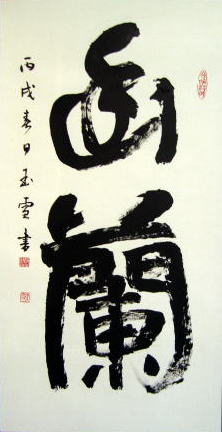 幽蘭
丙戌春日玉雪書